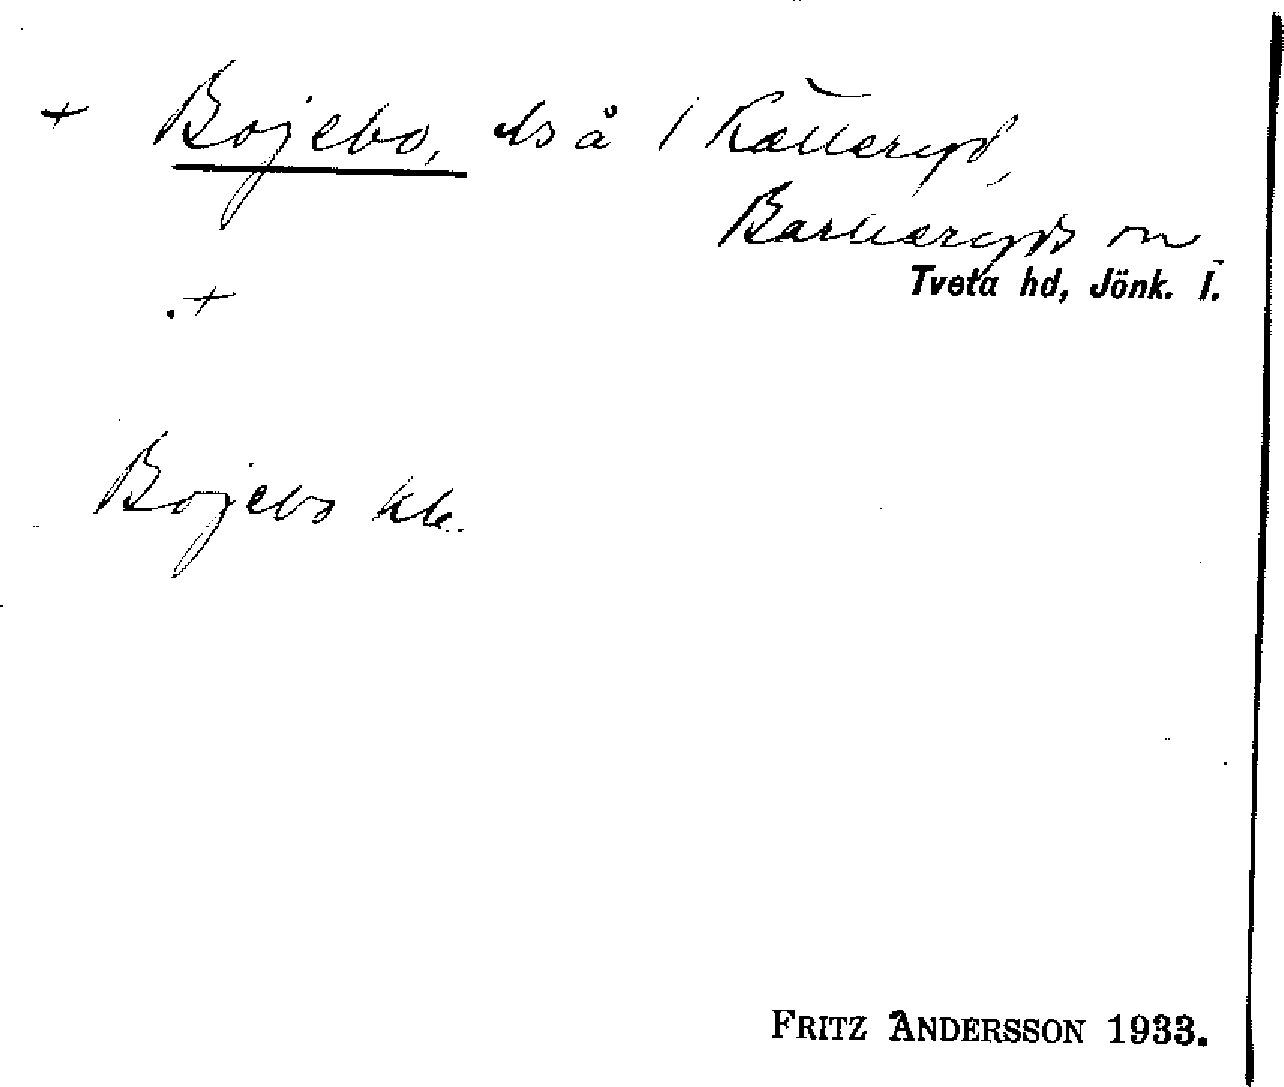 + Bojebo, ls å 1 Källeryd,
Barkeryds sn
Tveta hd, Jönk. l.
+
Bojebo hk.
FRITZ ANDERSSON 1933.